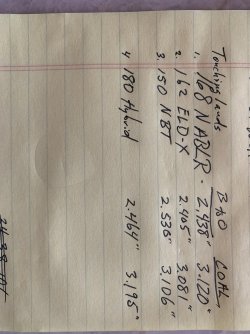 Touching lands BTO COAL
1. 168 NABLR - 2.438" 3.120"
2. 162 ELD-X 2.405" 3.081"
3. 150 NBT 2.536" 3.106"
4. 180 Hybrid 2.464" 3.95"